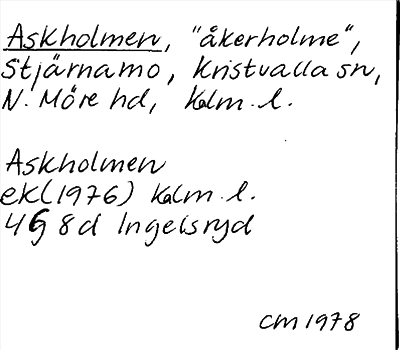 Askholmen, "åkerholme",
Stjärnamo, Kristvalla sn,
N. Möre hd, Kalm. l.
Askholmen
ek (1976) Kalm. l.
4G 8d Ingelsryd
CM 1978